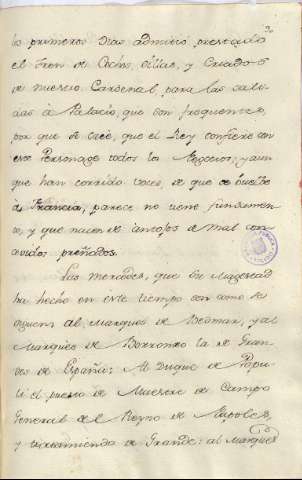 los primeros dias admitió prestado
el Tren de Coches, Sillas, y Criados
de nuestro Cardenal, para las sali-
das à Palacio, que son frequentes,
por que se creè, que el Rey confiere con
este Personage todos los Negocios; y aun
que han corrido voces, de que se buelve
à Francia, parece no tiene fundamen
to, y que nacen de antojos de mal con
tentos preñados.
Las mercedes, que Su Magestad
ha hecho en este tiempo son como se
siguen: al Marques de Bedmar, y al
Marques de Borromeo la de Gran-
des de España: Al Duque de Popu
li el puesto de Maestre de Campo
General del Reyno de Napoles,
y tratamiento de Grande: al Marques